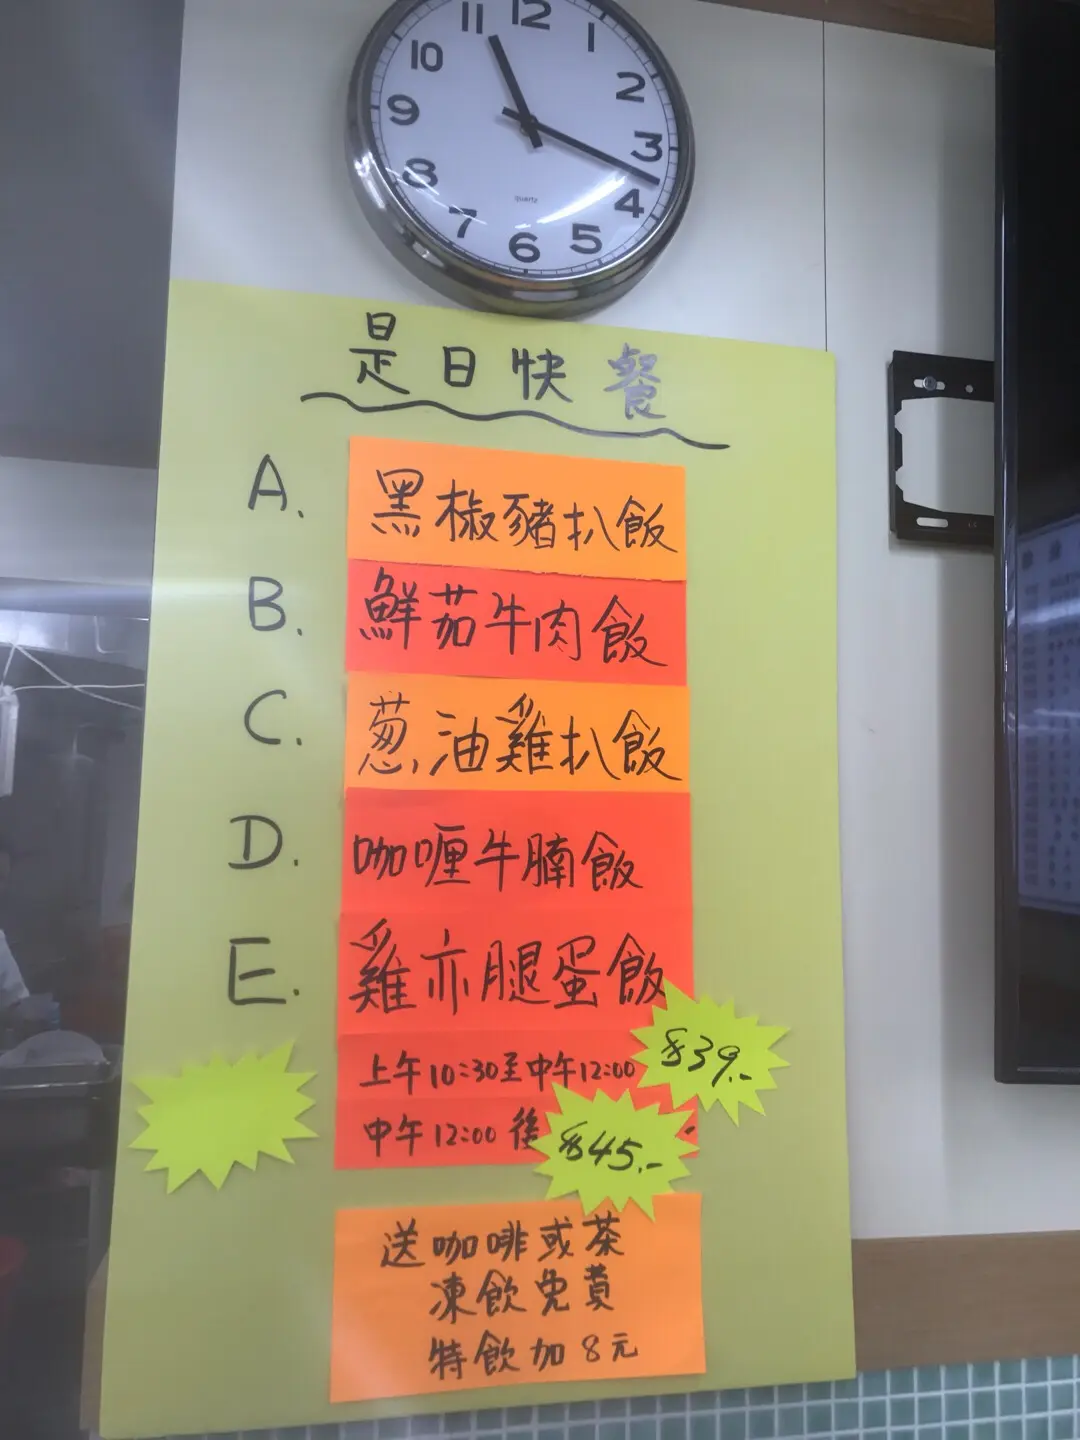 11 12 1
10 2
9 3
8 4
7 6 5
quartz
是日快餐
A. 黑椒豬扒飯
B. 鮮茄牛肉飯
C. 葱油雞扒飯
D. 咖喱牛腩飯
E. 雞亦腿蛋飯
上午10:30至中午12:00 $39.-
中午12:00後 $45.-
送咖啡或茶
凍飲免費
特飲加8元